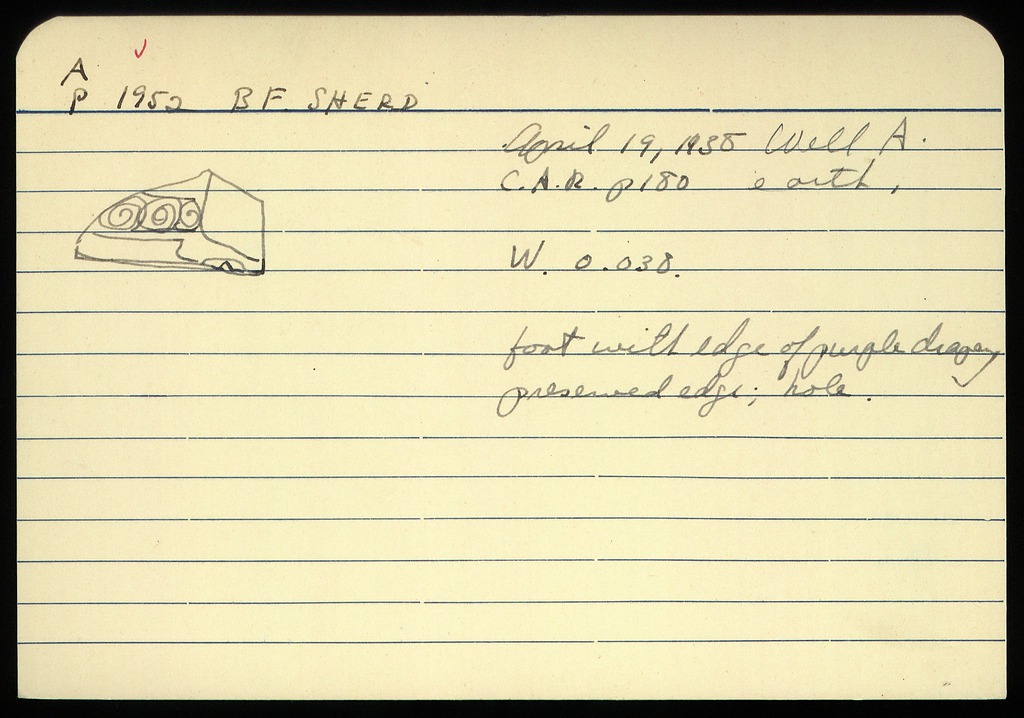 A
P 1952 BF. SHERD
April 19, 1938 Well A.
C.A.R. p180 earth,
W. 0.038.
foot with edge of purple drapery
preserved edge; hole.